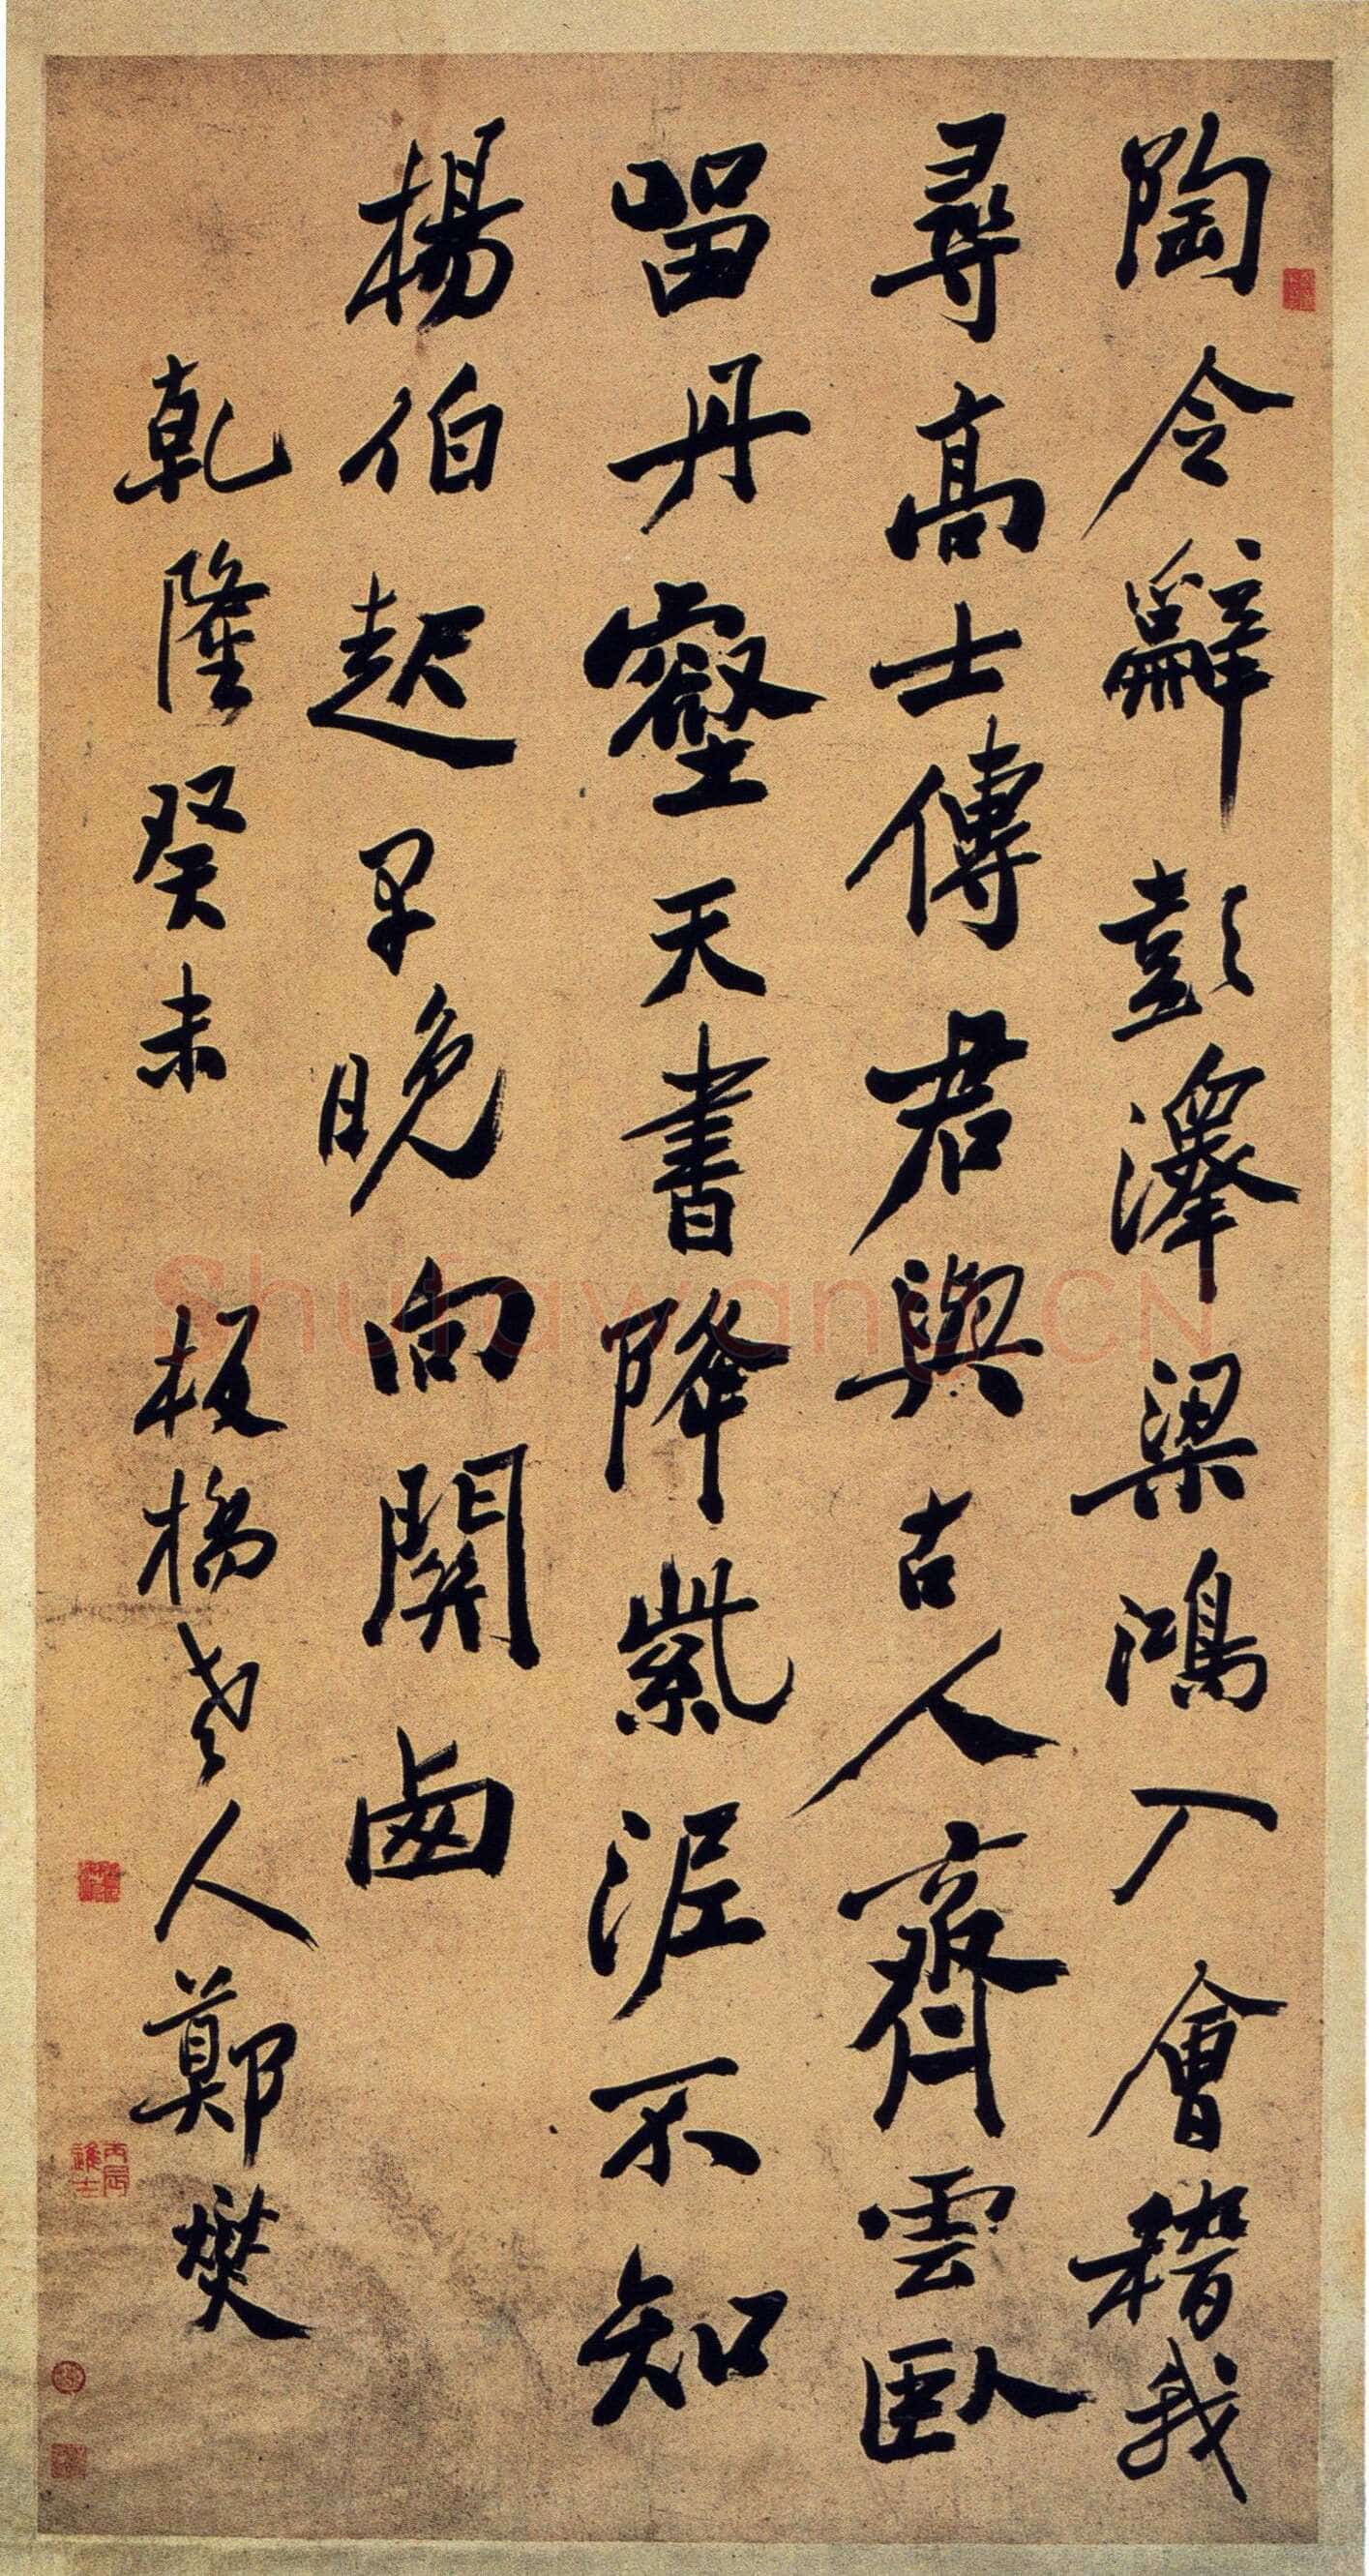 陶令辭彭澤梁鴻入會稽我
尋高士傳君與古人齊雲臥
留丹壑天書降紫泥不知
楊伯起早晚向關西
乾隆癸未 板橋老人鄭燮
丙辰進士
Shufawang.CN